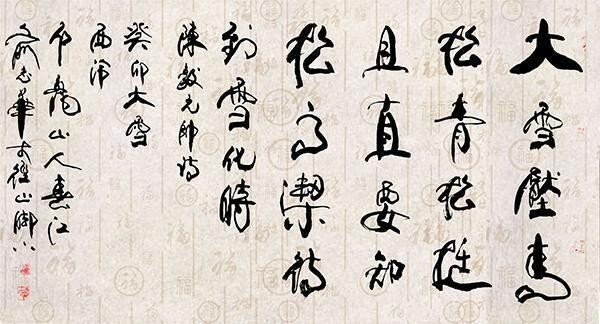 大雪壓青
松青松挺
且直要知
松高潔待
到雪化時
陳毅元帥詩
癸卯大雪
西泠
龍山人春江
俞志華於徑山脚下